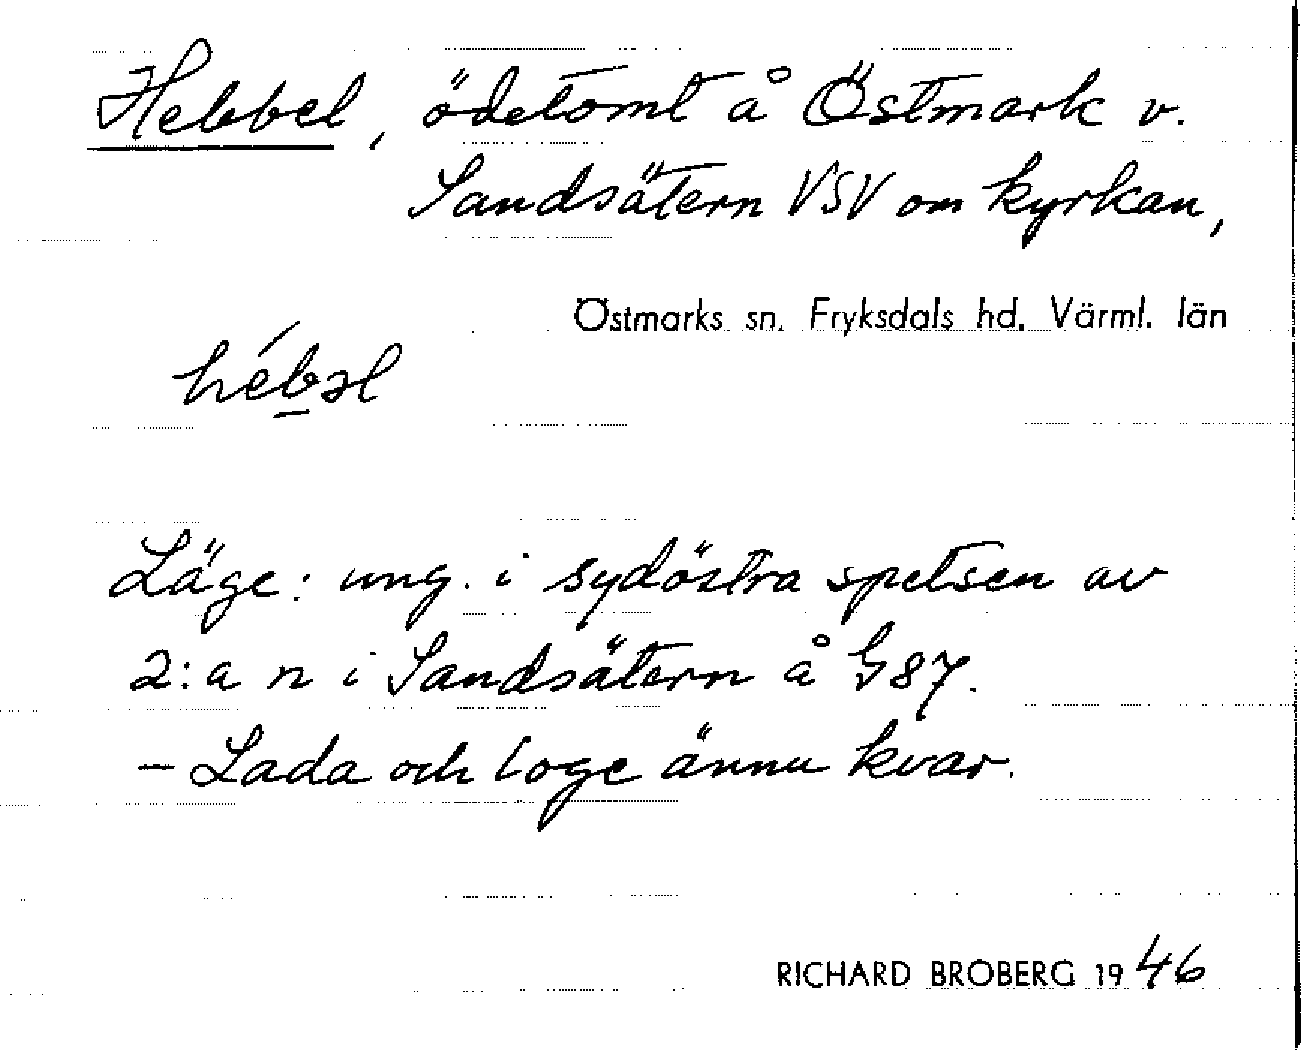 Hebbel, ödetomt å Östmark v.
Sandsätern VSV om kyrkan,
Östmarks sn. Fryksdals hd. Värml. län
hébəl
Läge: ung. i sydöstra spetsen av
2:a n i Sandsätern å G87.
– Lada och loge ännu kvar.
RICHARD BROBERG 1946